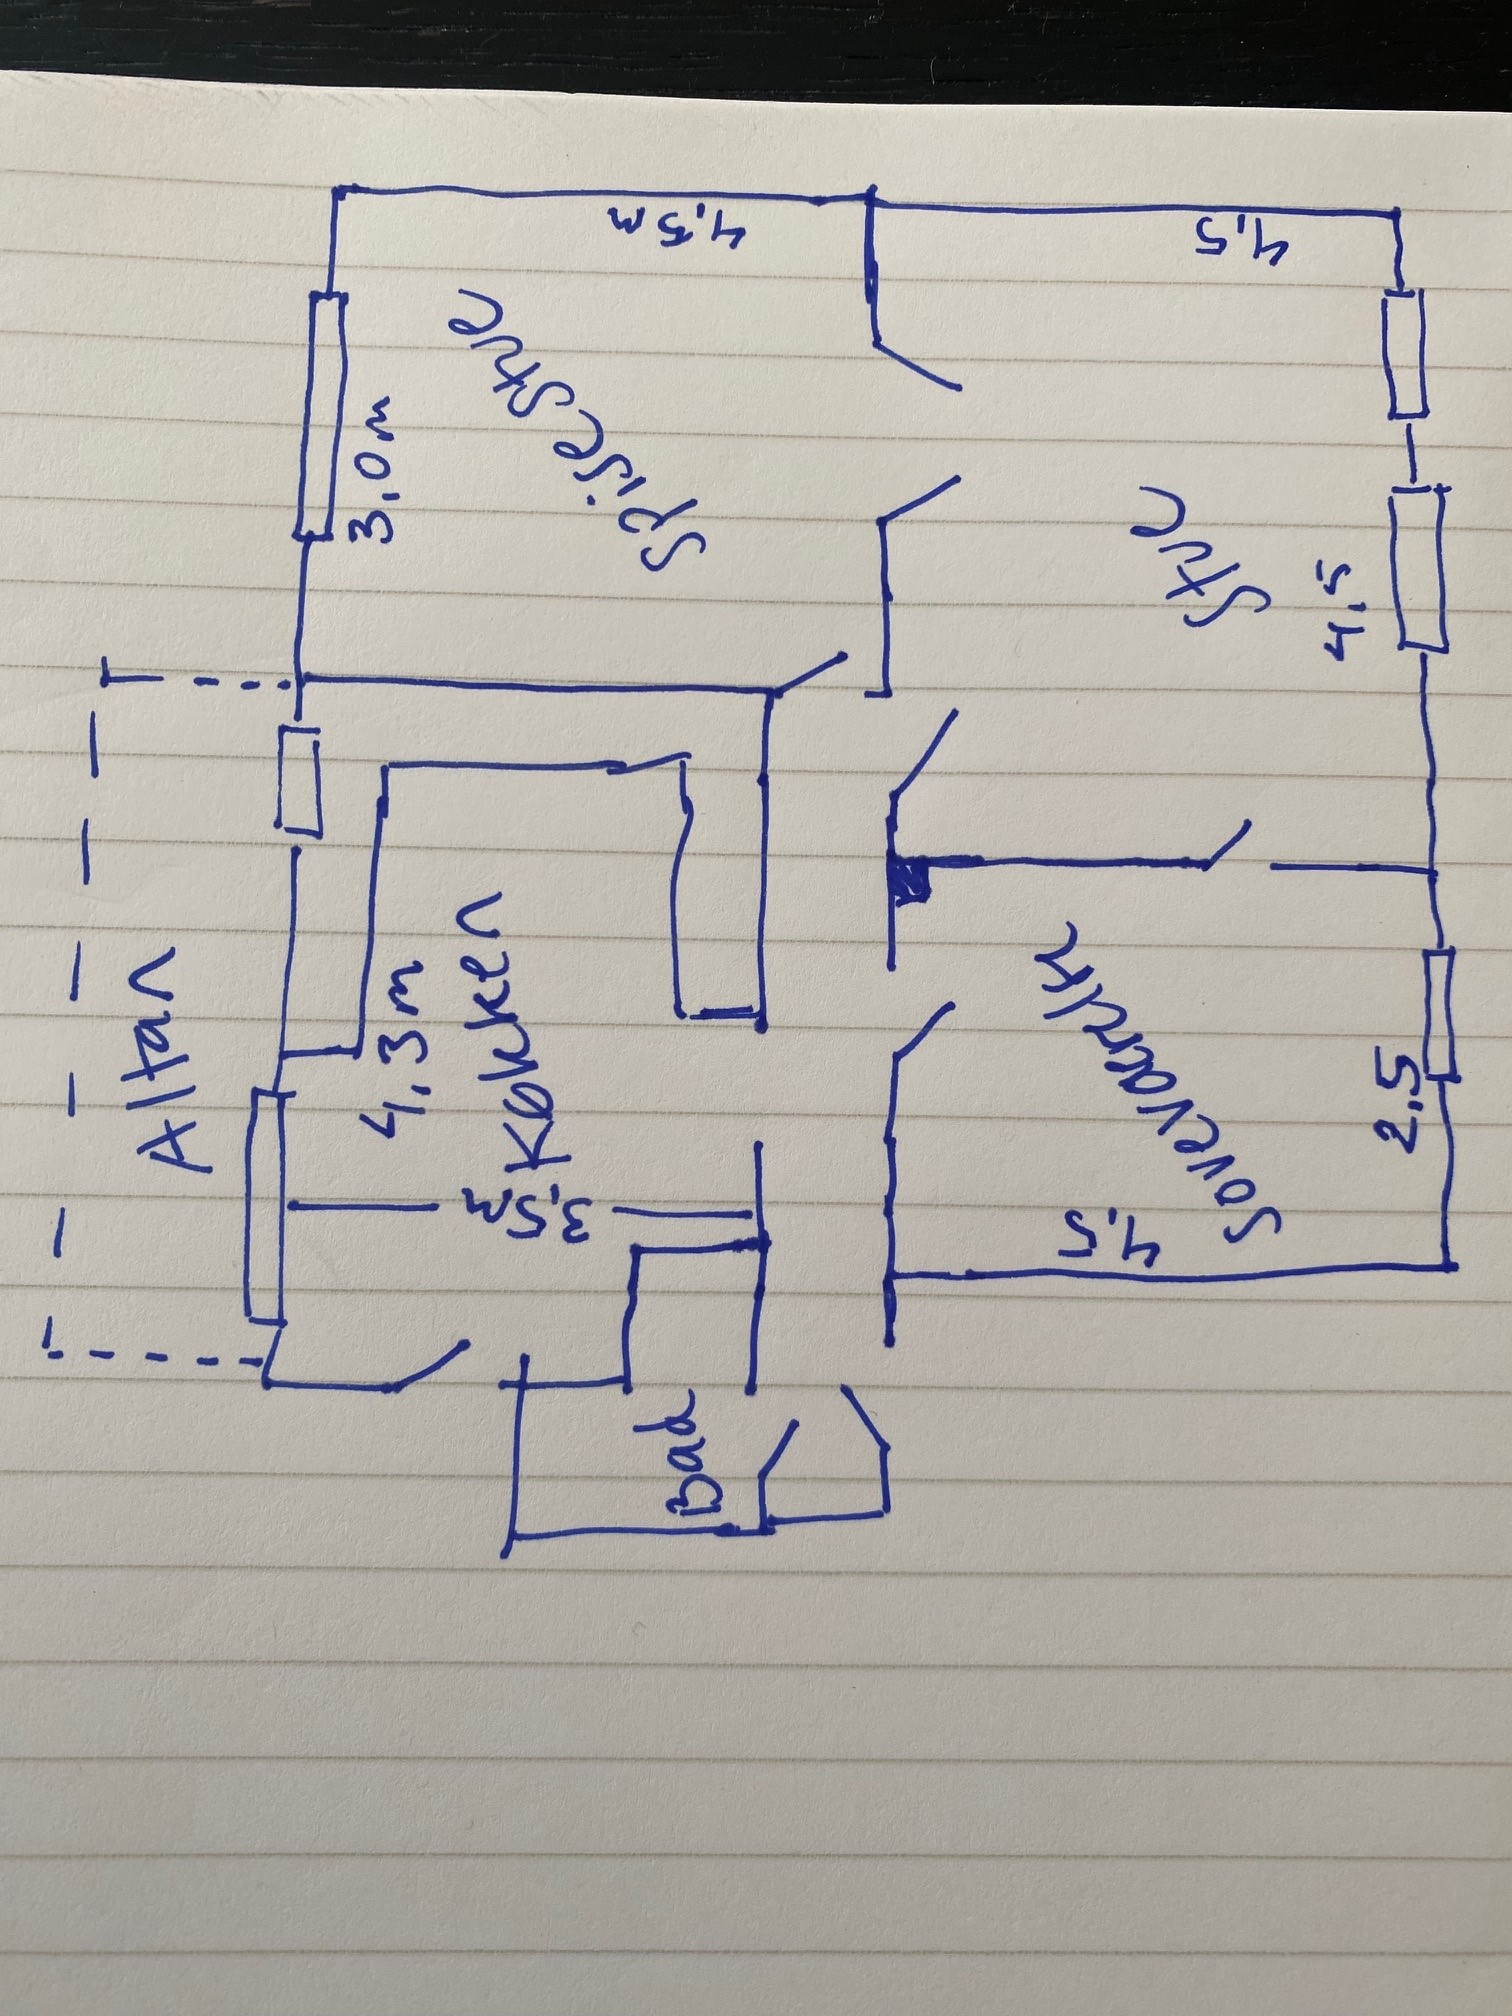 Altan
3,0 m
Spisestue
4,5 m
4,5
Stue
4,5
4,3 m
Køkken
3,5 m
Soveværelse
2,5
4,5
Bad